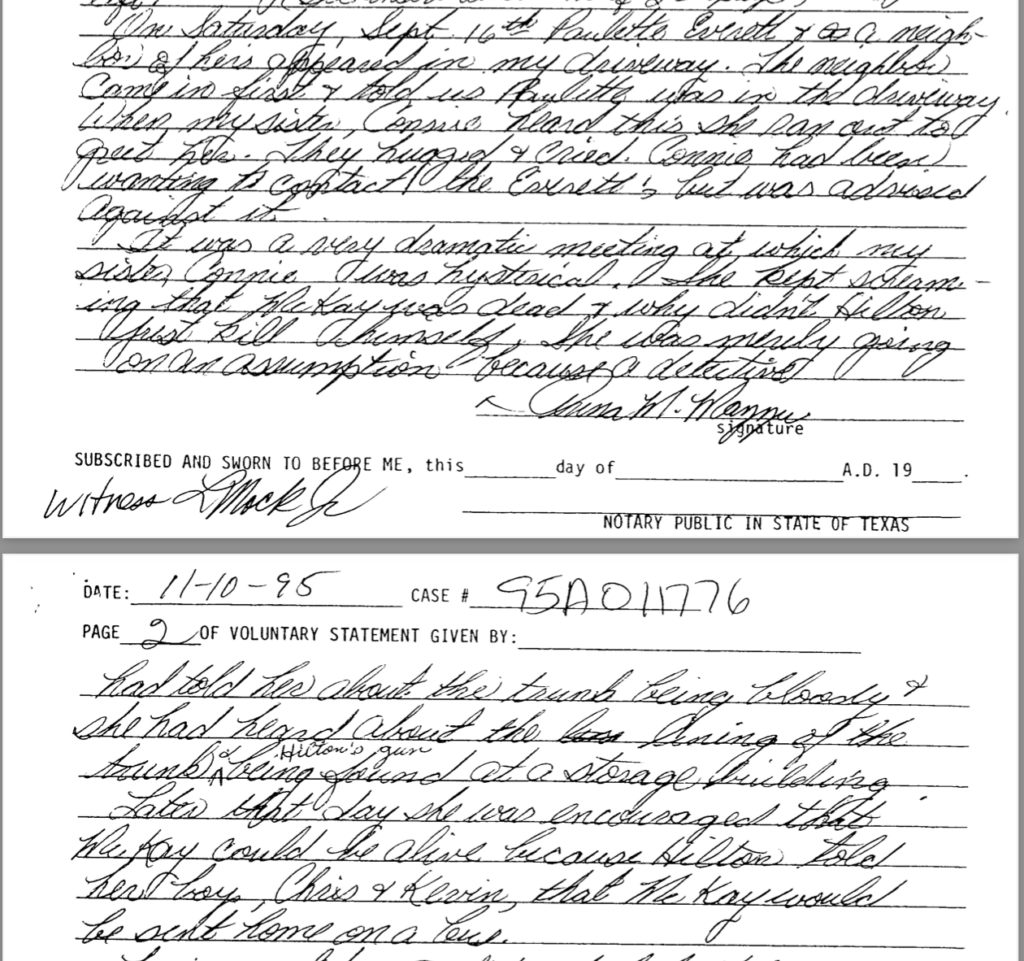 On Saturday, Sept. 16th Paulette Everett & a neigh-
bor of hers appeared in my driveway. The neighbor
came in first & told us Paulette was in the driveway.
When my sister, Connie heard this she ran out to
greet her. They hugged & cried. Connie had been
wanting to contact the Everett's but was advised
against it.
It was a very dramatic meeting at which my
sister, Connie was hysterical. She kept scream-
ing that McKay was dead & why didn't Hilton
just kill himself. She was merely going
on an assumption because a detective
signature
SUBSCRIBED AND SWORN TO BEFORE ME, this day of A.D. 19 .
Witness L Mock Jr
NOTARY PUBLIC IN STATE OF TEXAS
DATE: 11-10-95 CASE # 95A011776
PAGE 2 OF VOLUNTARY STATEMENT GIVEN BY:
had told her about the trunk being bloody &
she had heard about the lining of the
trunk & Hilton's gun being found at a storage building.
Later that day she was encouraged that
McKay could be alive because Hilton told
her boy, Chris & Kevin, that McKay would
be sent home on a bus.